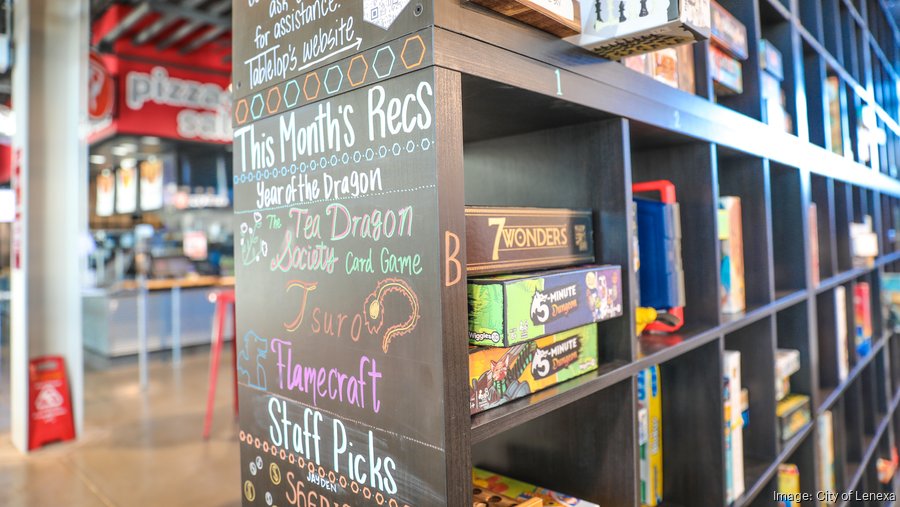 ask
for assistance.
TableTop's website
This Month's Recs
Year of the Dragon
The Tea Dragon
Society Card Game
Tsuro
Flamecraft
Staff Picks
JAYDEN
pizza
1
2
B
7 WONDERS
5-MINUTE
Dungeon
Wiggles
5-MINUTE
Dungeon
Image: City of Lenexa